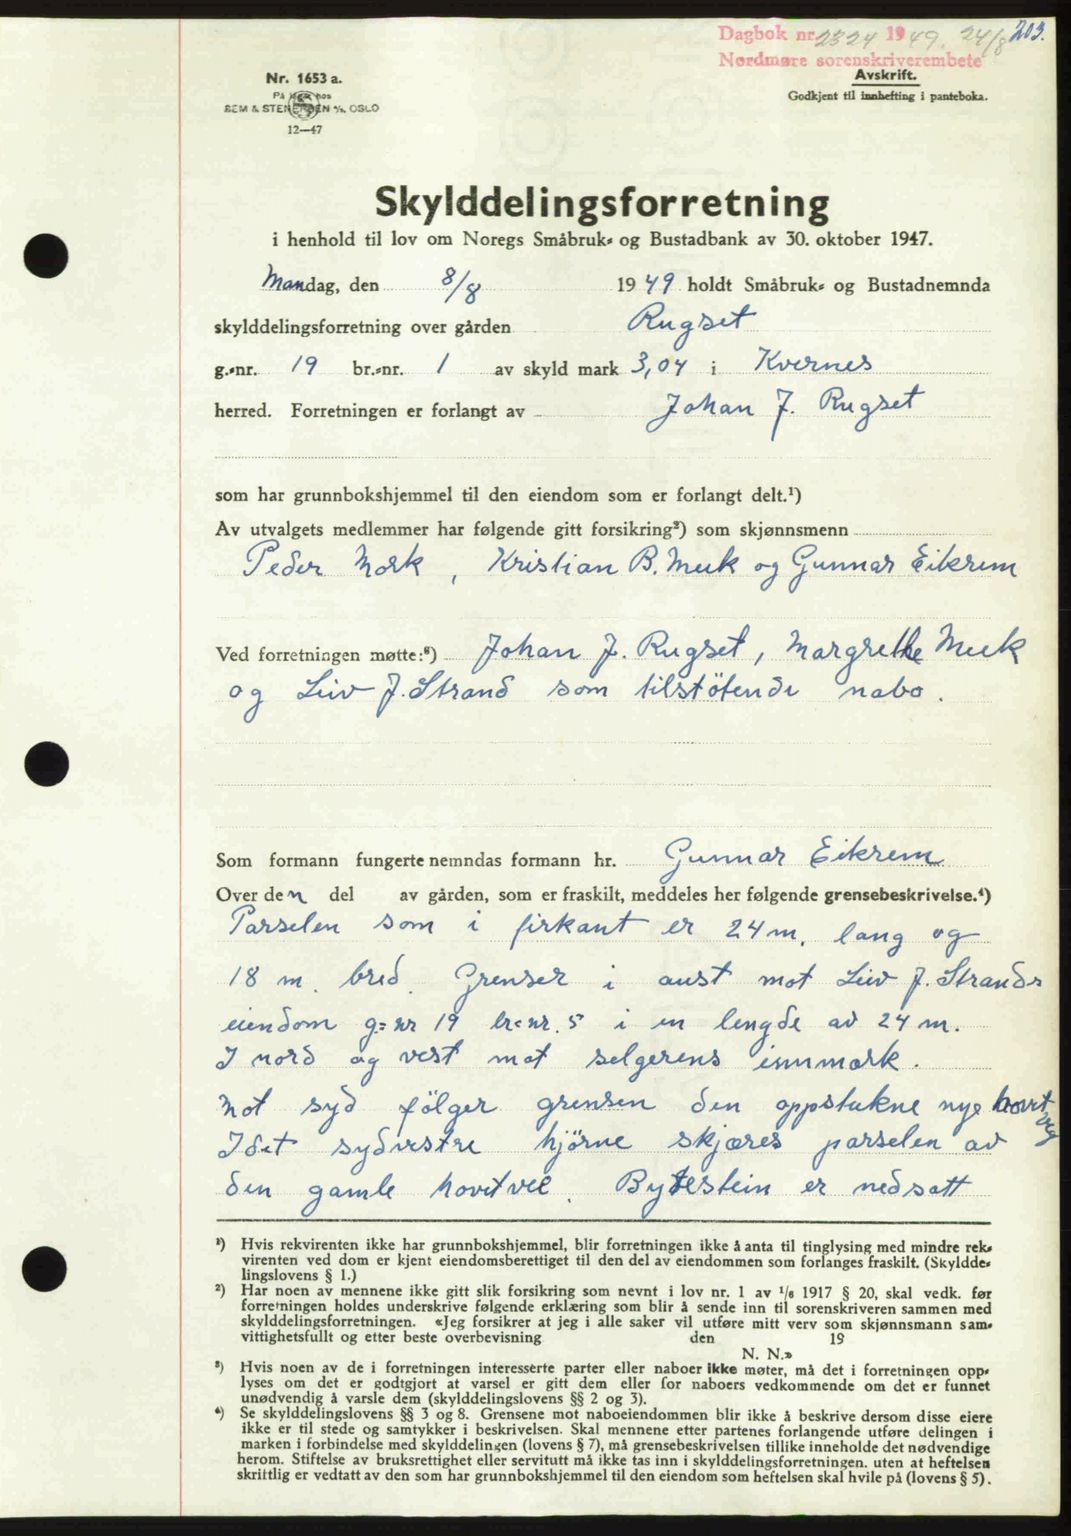 Dagbok nr. 2324 1949. 24/8 203.
Nordmøre sorenskriverembete
Nr. 1653 a.
På lager hos
SEM & STENERSEN A/S, OSLO
12—47
Avskrift.
Godkjent til innhefting i panteboka.
Skylddelingsforretning
i henhold til lov om Noregs Småbruk- og Bustadbank av 30. oktober 1947.
Mandag, den 8/8 1949 holdt Småbruk- og Bustadnemnda
skylddelingsforretning over gården Rugset
g.-nr. 19 br.-nr. 1 av skyld mark 3,04 i Kvernes
herred. Forretningen er forlangt av Johan J. Rugset
som har grunnbokshjemmel til den eiendom som er forlangt delt.¹)
Av utvalgets medlemmer har følgende gitt forsikring²) som skjønnsmenn
Peder Mork, Kristian B. Meek og Gunnar Eikrem
Ved forretningen møtte:³) Johan J. Rugset, Margrethe Meek
og Liv J. Strand som tilstötende nabo.
Som formann fungerte nemndas formann hr. Gunnar Eikrem
Over den del av gården, som er fraskilt, meddeles her følgende grensebeskrivelse.⁴)
Parselen som i firkant er 24 m. lang og
18 m. bred. Grenser i aust mot Liv J. Strands
eiendom g:nr 19 br:nr. 5 i en lengde av 24 m.
I nord og vest mot selgerens innmark.
Mot syd følger grensen den oppstukne nye hovitveg
I det sydvestre hjörne skjæres parselen av
den gamle hovitvei. Bytestein er nedsatt
¹) Hvis rekvirenten ikke har grunnbokshjemmel, blir forretningen ikke å anta til tinglysing med mindre rek-
virenten ved dom er kjent eiendomsberettiget til den del av eiendommen som forlanges fraskilt. (Skyldde-
lingslovens § 1.)
²) Har noen av mennene ikke gitt slik forsikring som nevnt i lov nr. 1 av 1/6 1917 § 20, skal vedk. før
forretningen holdes underskrive følgende erklæring som blir å sende inn til sorenskriveren sammen med
skylddelingsforretningen. «Jeg forsikrer at jeg i alle saker vil utføre mitt verv som skjønnsmann sam-
vittighetsfullt og etter beste overbevisning den 19
N. N.»
³) Hvis noen av de i forretningen interesserte parter eller naboer ikke møter, må det i forretningen opp-
lyses om det er godtgjort at varsel er gitt dem eller for naboers vedkommende om det er funnet
unødvendig å varsle dem (skylddelingslovens §§ 2 og 3).
⁴) Se skylddelingslovens §§ 3 og 8. Grensene mot naboeiendommen blir ikke å beskrive dersom disse eiere
ikke er til stede og samtykker i beskrivelsen. Skal mennene etter partenes forlangende utføre delingen i
marken i forbindelse med skylddelingen (lovens § 7), må grensebeskrivelsen tillike inneholde det nødvendige
herom. Stiftelse av bruksrettighet eller servitutt må ikke tas inn i skylddelingsforretningen. uten at heftelsen
skriftlig er vedtatt av den som har grunnbokshjemmel til den eiendom som heftelsen skal hvile på (lovens § 5).